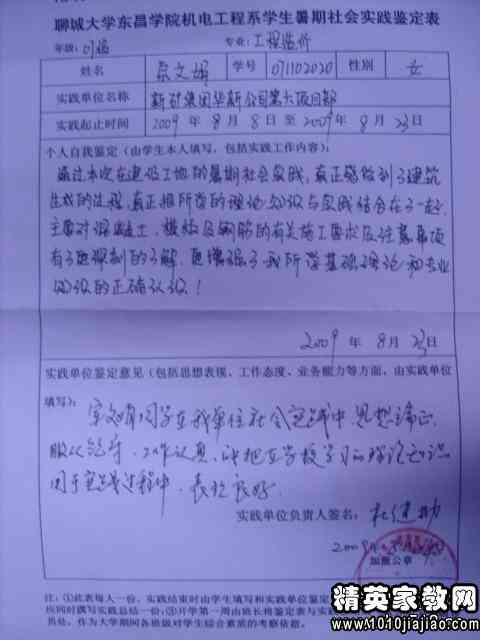 聊城大学东昌学院机电工程系学生暑期社会实践鉴定表
年级: 07级 专业: 工程造价
姓名 宗文娟 学号 071102020 性别 女
实践单位名称 新矿集团华新公司第六项目部
实践起止时间 2009 年 8 月 8 日 至 2009 年 8 月 23 日
个人自我鉴定（由学生本人填写，包括实践工作内容）：
通过本次在建设工地的暑期社会实践，真正感受到了建筑
生成的过程，真正把所学的理论知识与实践结合在了一起，
主要对混凝土、模板及钢筋的有关施工要求及注意事项
有了更深刻的了解，更增强了我所学基础理论和专业
知识的正确认识！
2009 年 8 月 23 日
实践单位鉴定意见（包括思想表现、工作态度、业务能力等方面，由实践单位
填写）：
宗文娟同学在我单位社会实践中，思想端正，
服从领导，工作认真，能把在学校学习的理论知识
用于实践过程中，表现良好。
实践单位负责人签名：
2009年
加盖公章
注：①此表每人一份，实践结束时由学生填写和实践单位鉴定
应同时撰写实践总结一份；③开学第一周由班长将鉴定表与实践
员处，作为大学期间各班级对学生综合素质的考察依据。
精英家教网
www.1010jiajiao.com